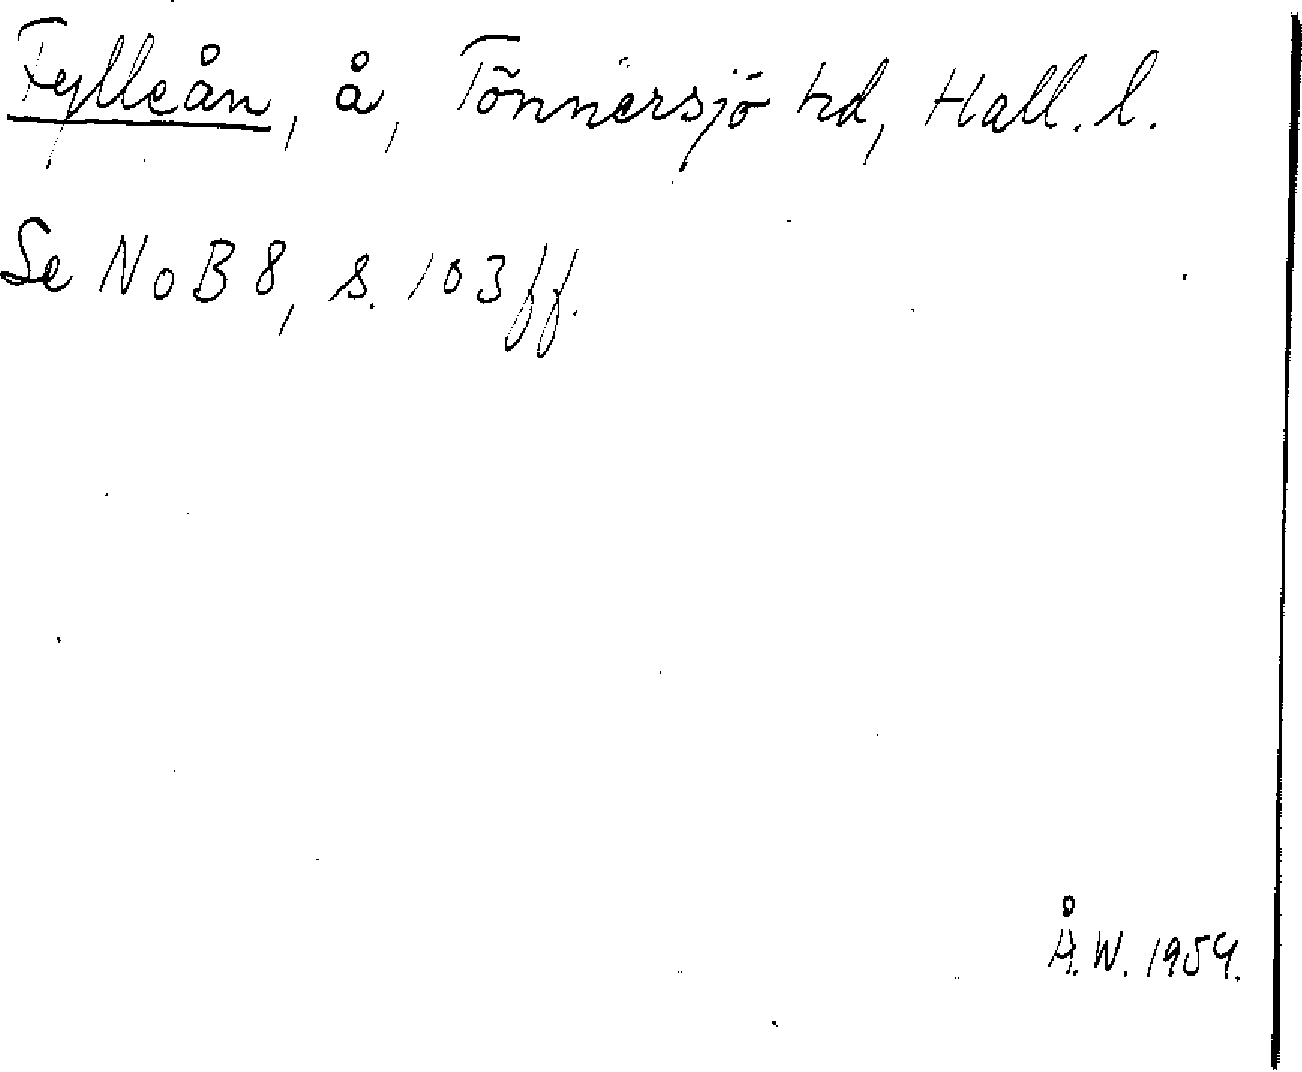 Fylleån, å, Tönnersjö hd, Hall. l.
Se NoB 8, s. 103 ff.
Å. W. 1954.